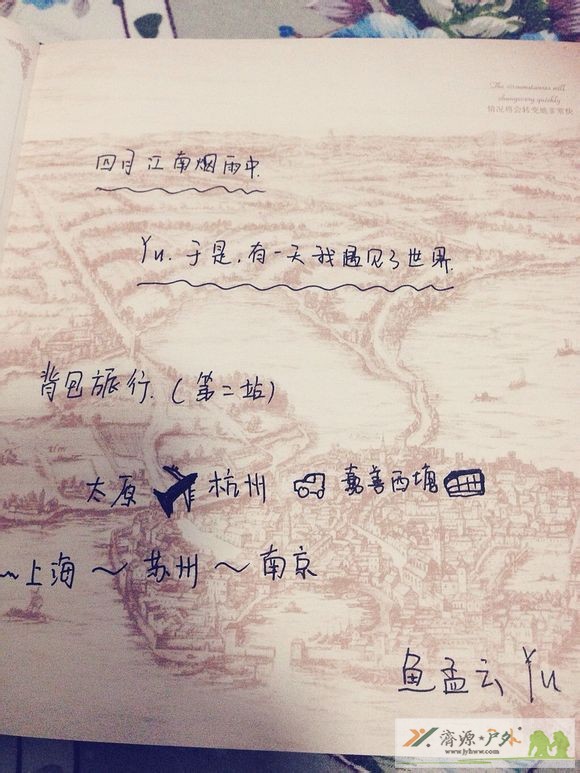 The circumstances will
changevery quickly
情况将会转变地多霎快
四月江南烟雨中.
Yu. 于是,有一天我遇见了世界.
背包旅行.(第二站)
太原 杭州 嘉善西塘
~上海~苏州~南京
鱼孟云 Yu
济源·户外
www.jyhww.com